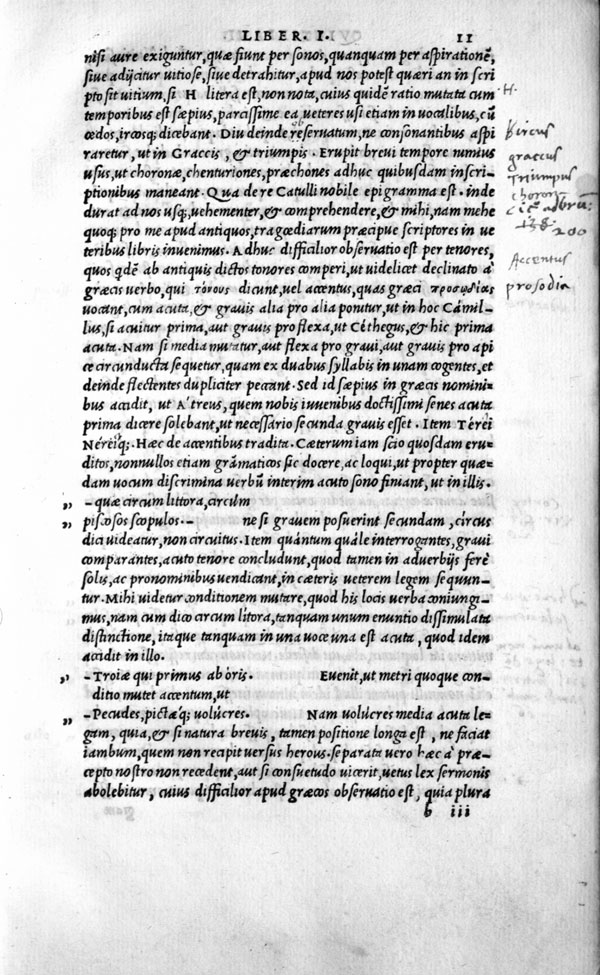 LIBER. I. 11
nisi aure exiguntur, quæ fiunt per sonos, quanquam per aspirationẽ,
siue adijcitur vitiose, siue detrahitur, apud nos potest quæri an in scri
pto sit vitium, si H litera est, non nota, cuius quidẽ ratio mutata cum
temporibus est sæpius, parcissime ea ueteres usi etiam in uocalibus, cũ
œdos, ircosq; dicebant. Diu deinde reseruatum, ne consonantibus aspi
raretur, ut in Graccis, & triumpis. Erupit brevi tempore nimius
usus, ut choronæ, chenturiones, præchones adhuc quibusdam inscri-
ptionibus maneant. Qua de re Catulli nobile epigramma est. inde
durat ad nos usq; uehementer, & comprehendere, & mihi, nam mehe
quoq; pro me apud antiquos, tragœdiarum præcipue scriptores in ue
teribus libris inuenimus. Adhuc difficilior obseruatio est per tenores,
quos qdẽ ab antiquis dictos tonores comperi, ut uidelicet declinato à
græcis uerbo, qui τόνους dicunt, uel accentus, quas græci προσῳδίας
uocant, cum acuta, & grauis alia pro alia ponitur, ut in hoc Cámil-
lus, si acuitur prima, aut grauis pro flexa, ut Céthegus, & hic prima
acuta. Nam si media mutatur, aut flexa pro graui, aut grauis pro api
ce circunducta sequetur, quam ex duabus syllabis in unam cogentes, et
deinde flectentes dupliciter peccant. Sed id sæpius in græcis nomini-
bus accidit, ut A'treus, quem nobis iuuenibus doctissimi senes acuta
prima dicere solebant, ut necessario secunda grauis esset. Item Térei
Néreiq;. Hæc de accentibus tradita. Cæterum iam scio quosdam eru-
ditos, nonnullos etiam grãmaticos sic docere, ac loqui, ut propter quæ-
dam uocum discrimina uerbũ interim acuto sono finiant, ut in illis.
„ - quæ circum littora, circũm
„ piscosos scopulos. - ne si grauem posuerint secundam, círcus
dici uideatur, non circuitus. Item quántum quále interrogantes, graui
comparantes, acuto tenore concludunt, quod tamen in aduerbijs ferè
solis, ac pronominibus uendicant, in cæteris ueterem legem sequun-
tur. Mihi uidetur conditionem mutare, quod his locis uerba coniungi-
mus, nam cum dico circum litora, tanquam unum enuntio dissimulata
distinctione, itaque tanquam in una uoce una est acuta, quod idem
accidit in illo.
„ - Troiæ qui primus ab óris. Euenit, ut metri quoque con-
ditio mutet accentum, ut
„ - Pecudes, pictæq; uolúcres. Nam uolúcres media acuta le-
gam, quia, & si natura breuis, tamen positione longa est, ne faciat
iambum, quem non recipit uersus herous. separata uero hæc à præ-
cepto nostro non recedent, aut si consuetudo uicerit, uetus lex sermonis
abolebitur, cuius difficilior apud græcos obseruatio est, quia plura
b iii
H.
hircus
graccus
Triumpus
choronæ
Accentus
prosodia